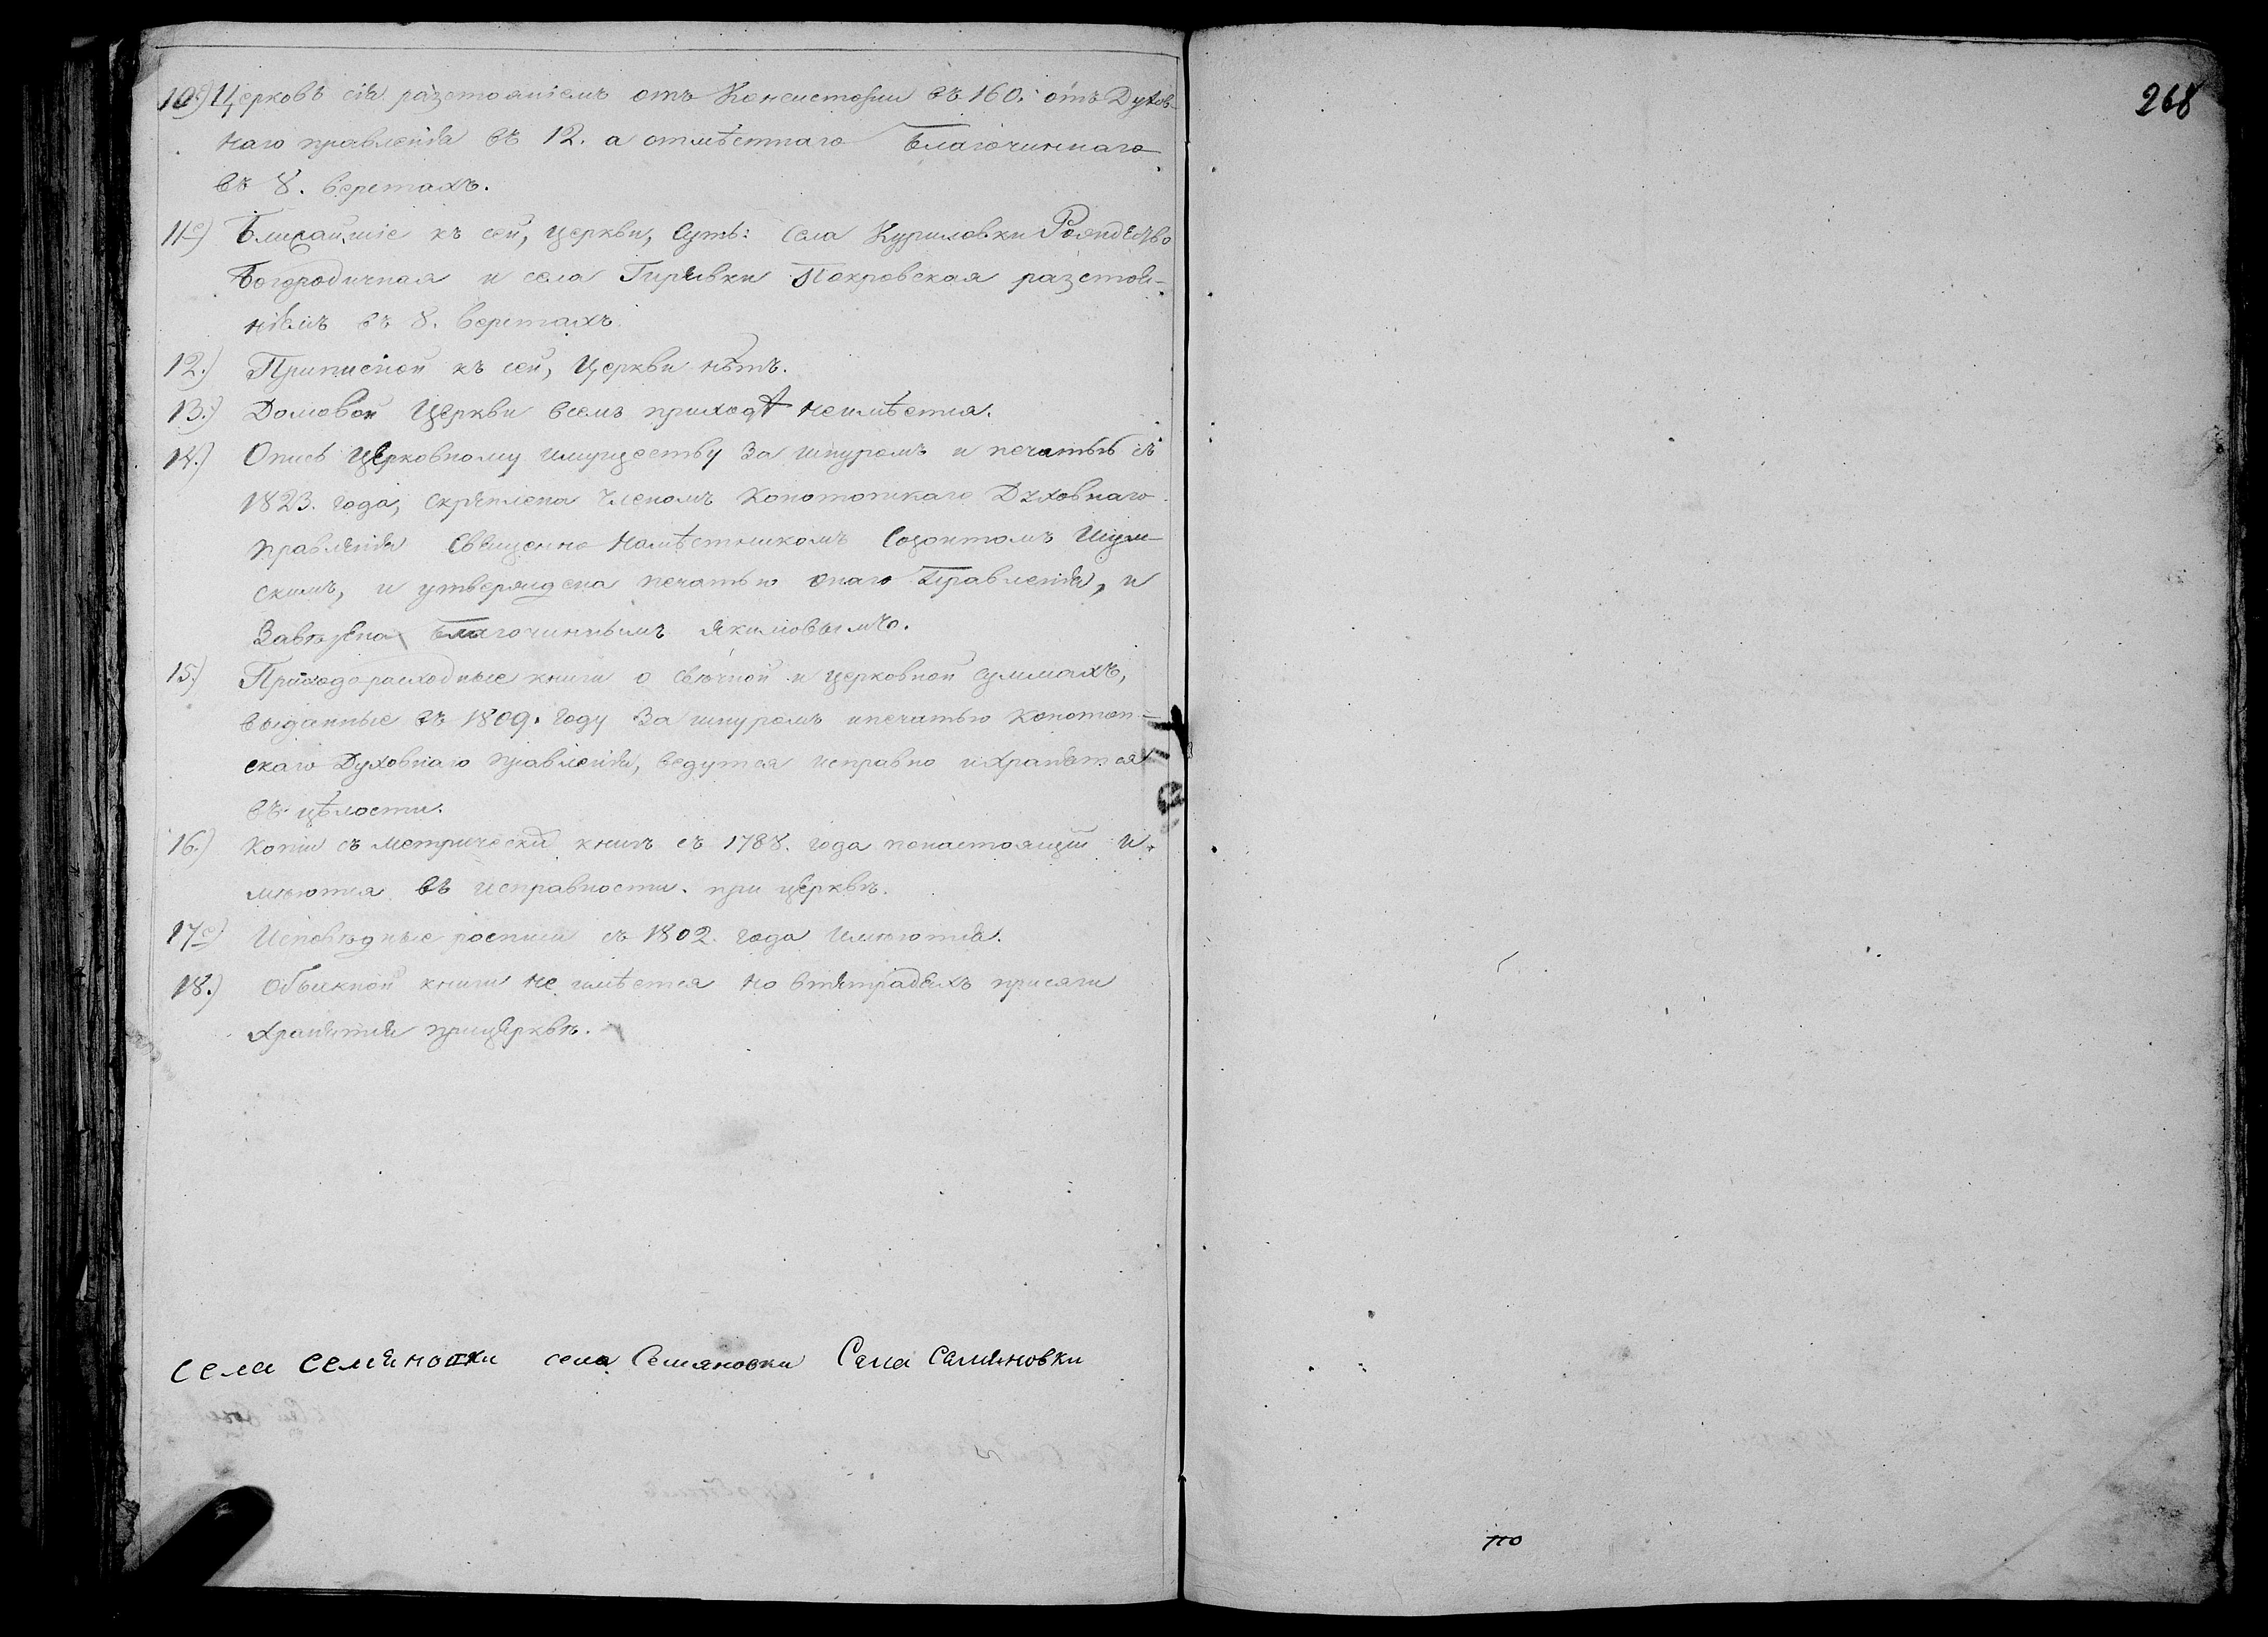 268
10е) Церковь сія разстояніемъ отъ Консисторіи въ 160. отъ Духов-
наго правленія въ 12. а отмѣстнаго Благочиннаго
въ 8. верстахъ.
11е) Ближайшіе къ сей, церкви, суть: села Куриловки Рождество
Богородичная и села Гирявки Покровская разстоя-
ніемъ въ 8. верстахъ.
12.) Приписной къ сей, Церкви нѣтъ.
13.) Домовой Церкви всемъ приходѣ неимѣется.
14.) Опись Церковному имуществу За шнуромъ и печатью съ
1823. года, скрѣплена Членомъ Конотопскаго Духовнаго
Правленія Священно Намѣстникомъ Созонтомъ Шум-
скимъ, и утверждена печатью онаго Правленія, и
Завѣрена Благочиннымъ Якимовымъ.
15.) Приходорасходные книги о свѣчной и церковной суммахъ,
выданные въ 1809. году За шнуромъ ипечатью Конотоп-
скаго Духовнаго правленія, ведутся исправно ихранятся
въ цѣлости.
16.) Копіи съ метрически книгъ съ 1788. года понастоящій и-
мѣются въ исправности. при церквѣ.
17е) Исповѣдные росписи съ 1802. года имѣются.
18.) Обыкной книги не имѣется но втетрадяхъ присяги
хранятся прицерквѣ.
села Семяновки села Семяновки Села Семяновки
110